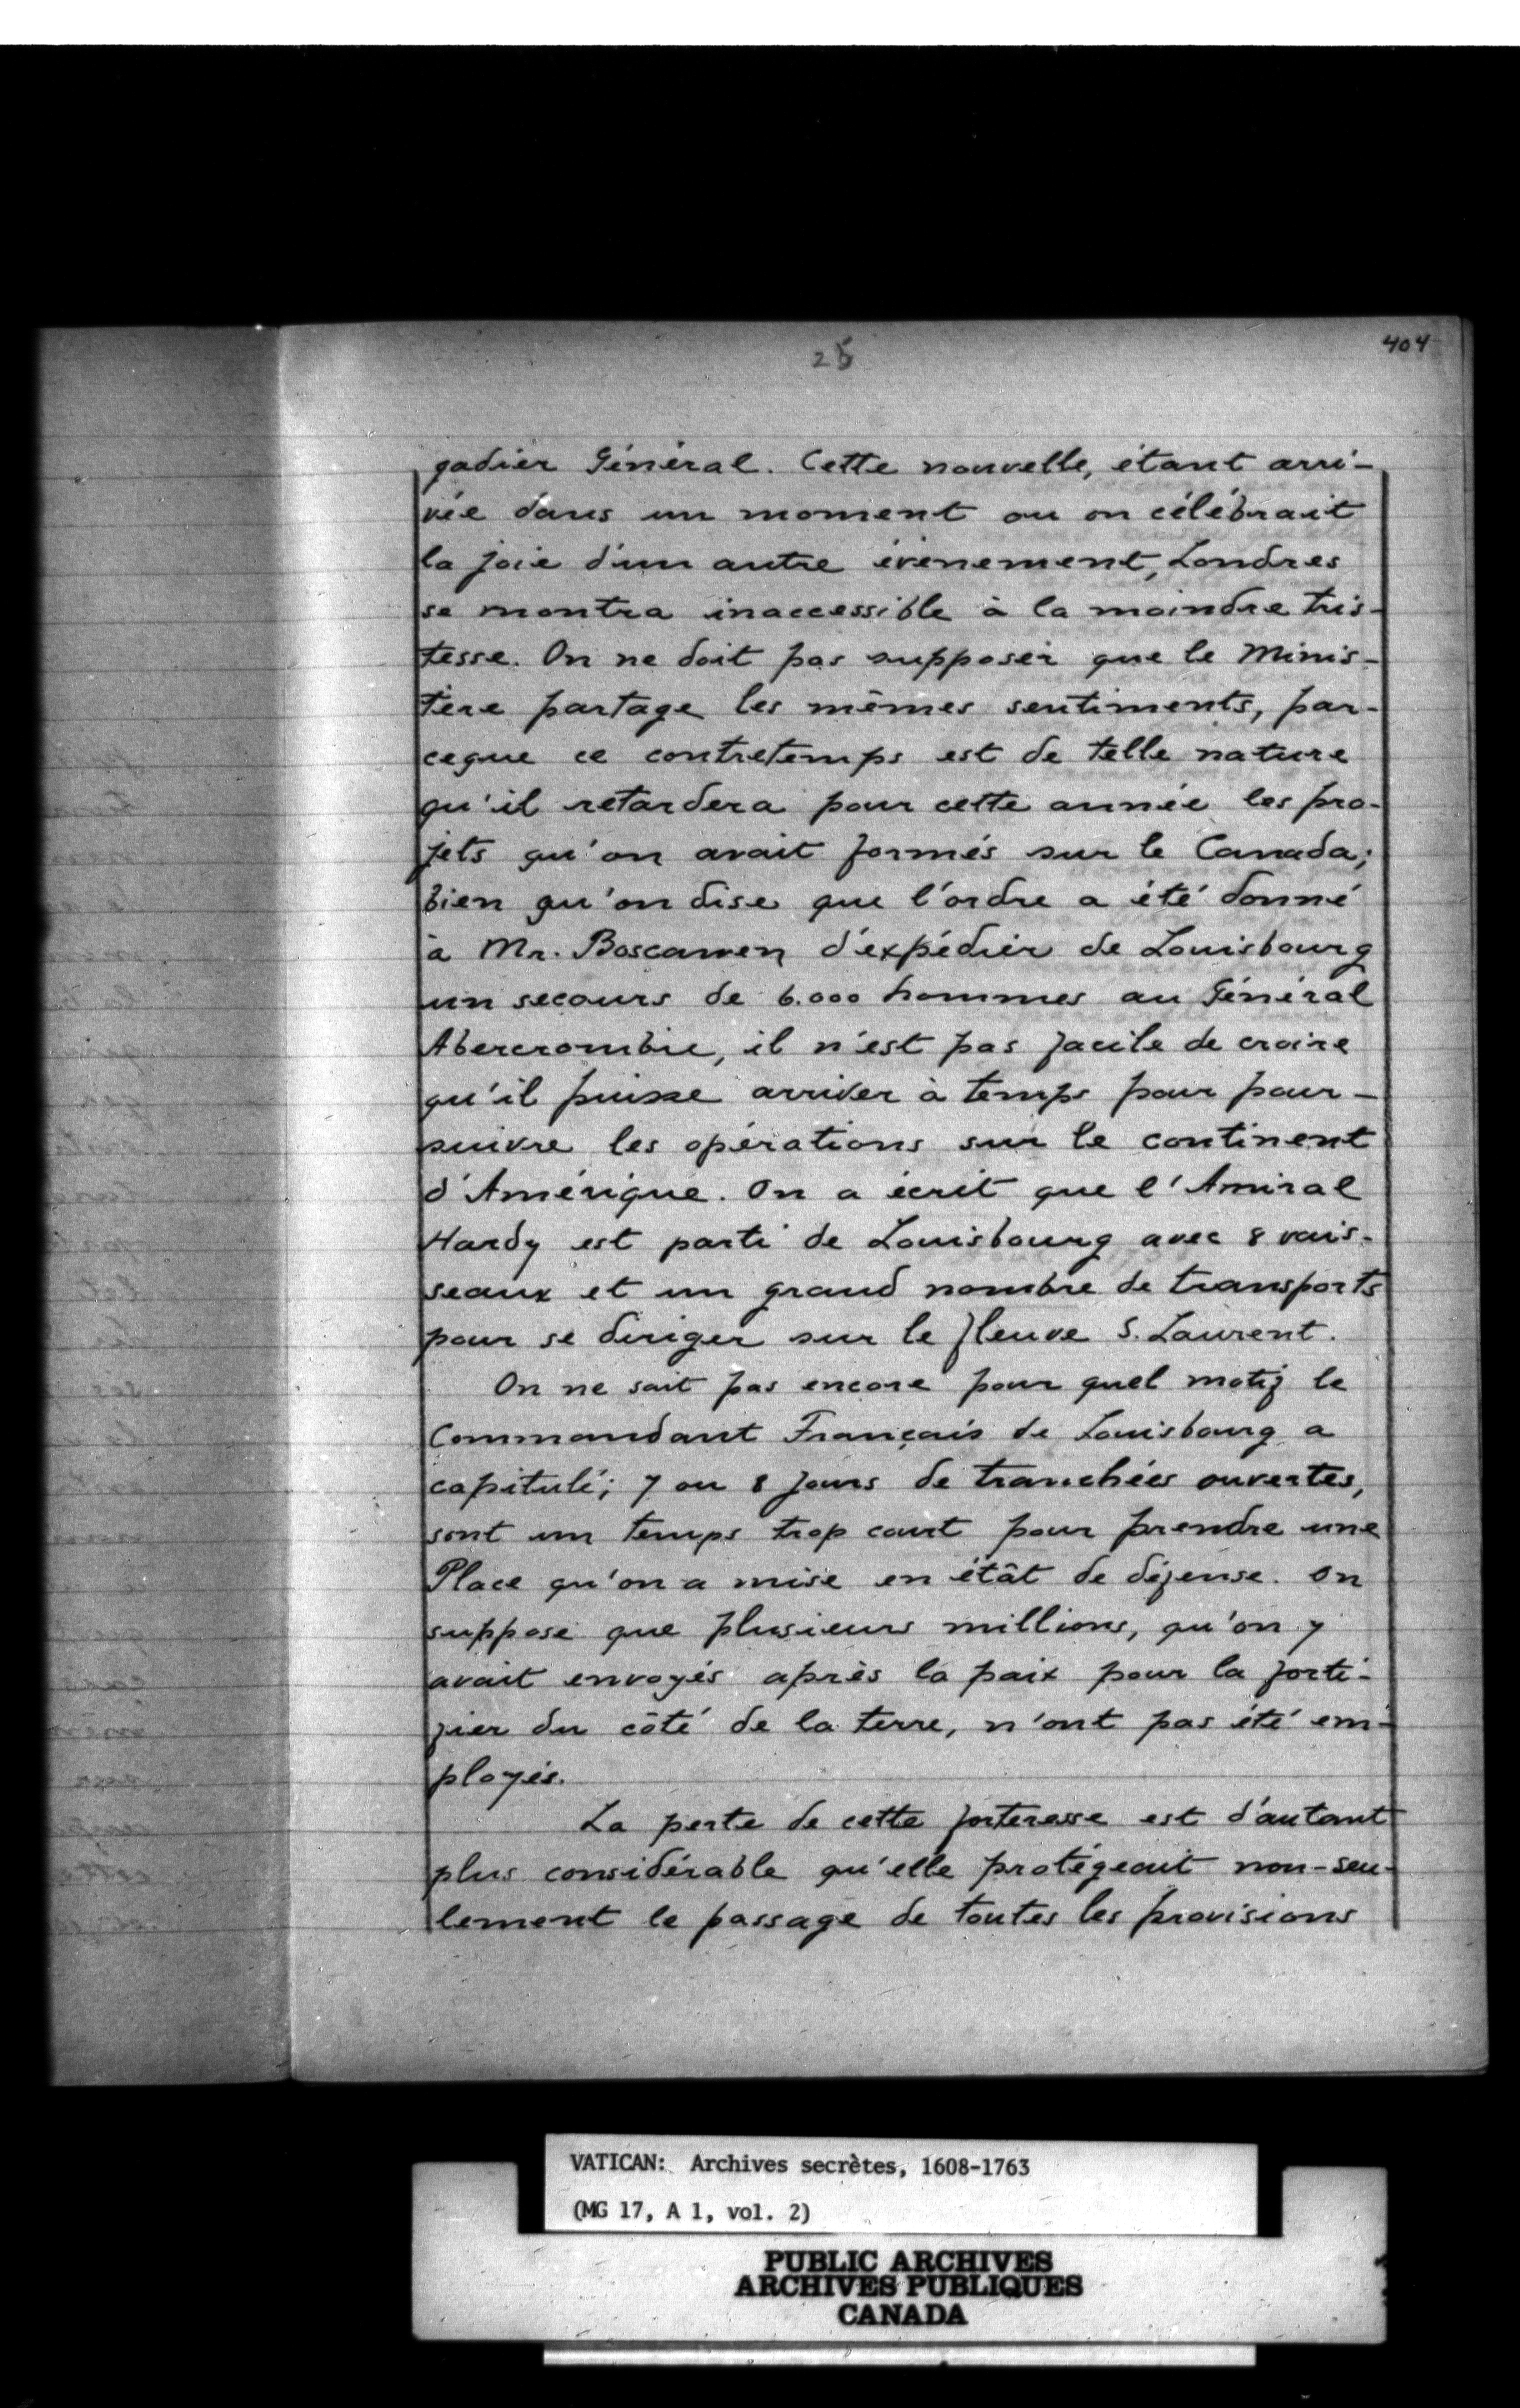 25
404
gadier Général. Cette nouvelle, étant arri-
vée dans un moment ou on célébrait
la joie d'un autre évènement, Londres
se montra inaccessible à la moindre tris-
tesse. On ne doit pas supposer que le Minis-
tère partage les mêmes sentiments, par-
ceque ce contretemps est de telle nature
qu'il retardera pour cette année les pro-
jets qu'on avait formés sur le Canada;
bien qu'on dise que l'ordre a été donné
à Mr. Boscawen d'expédier de Louisbourg
un secours de 6.000 hommes au Général
Abercrombie, il n'est pas facile de croire
qu'il puisse arriver à temps pour pour-
suivre les opérations sur le continent
d'Amérique. On a écrit que l'Amiral
Hardy est parti de Louisbourg avec 8 vais-
seaux et un grand nombre de transports
pour se diriger sur le fleuve S. Laurent.
On ne sait pas encore pour quel motif le
Commandant Français de Louisbourg a
capitulé; 7 ou 8 jours de tranchées ouvertes,
sont un temps trop court pour prendre une
Place qu'on a mise en étât de défense. On
suppose que plusieurs millions, qu'on y
avait envoyés après la paix pour la forti-
fier du côté de la terre, n'ont pas été em-
ployés.
La perte de cette forteresse est d'autant
plus considérable qu'elle protégeait non-seu-
lement le passage de toutes les provisions
VATICAN: Archives secrètes, 1608-1763
(MG 17, A 1, vol. 2)
PUBLIC ARCHIVES
ARCHIVES PUBLIQUES
CANADA